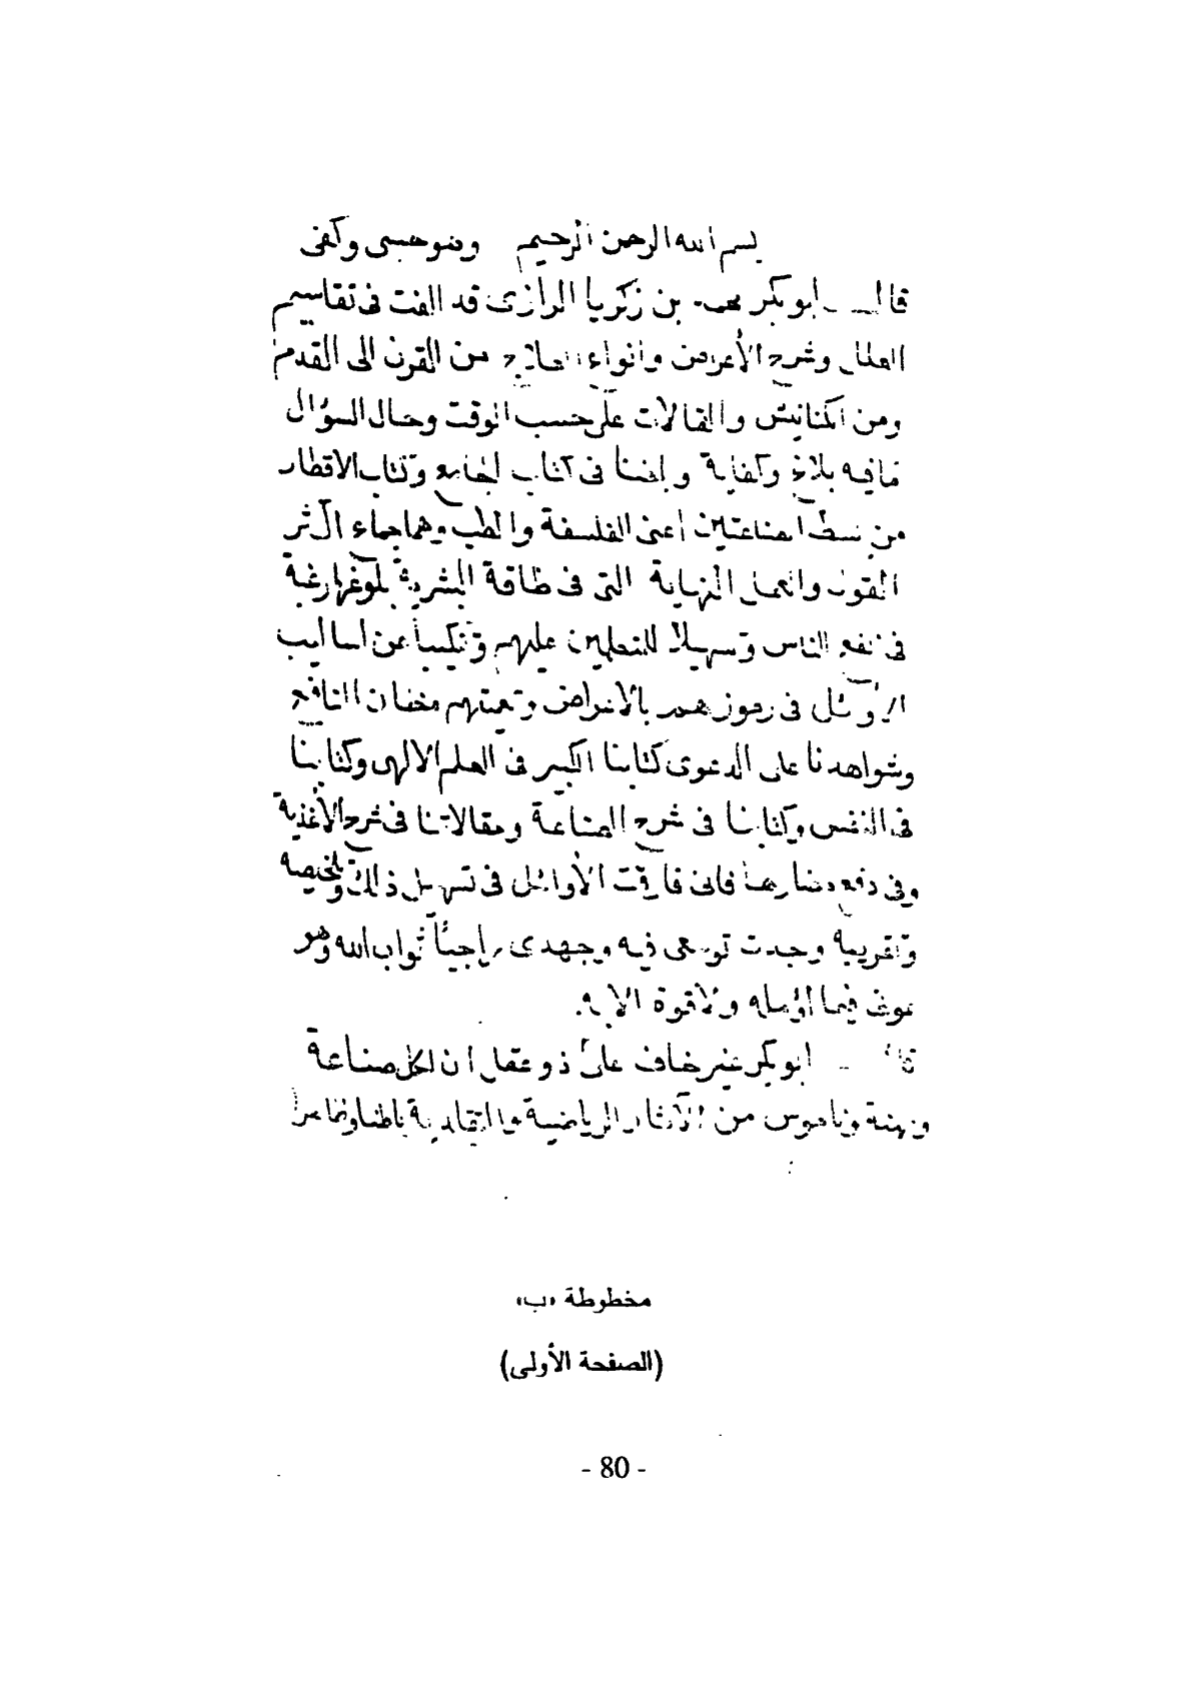 بسم الله الرحمن الرحيم وهو حسبى وكفى
قال ابو بكر محمد بن زكريا الرازى قد الفت فى تقاسيم
العلل وشرح الأعراض وانواع العلاج من القرن الى القدم
ومن الكنانيش والمقالات على حسب الوقت وحال السؤال
مافيه بلاغ وكفاية وايضا فى كتاب الجامع وكتاب الاقطار
من بسط الصناعتين أعنى الفلسفة والطب وهما جماء
القول والعمل النهاية التى فى طاقة البشرية بلوغها رغبة
فى نفع الناس وتسهيلا للمتعلمين عليهم وتنكيبا عن اساليب
الأوائل فى رموزهم بالاغراض وتعميتهم مخفان النافع
وشواهدنا على الدعوى كتابنا الكبير فى العلم الالهى وكتابنا
فى النفس وكتابنا فى شرح الصناعة ومقالاتنا فى شرح الأغذية
وفى دفع مضارها فانى فارقت الأوائل فى تسهيل ذلك وتلخيصه
وتقريبه وجدت توسعى فيه وجهدى راجيئاً ثواب الله وهو
عونى فيما اؤمله ولا قوة الا به.
قال ابو بكر غير خاف على ذو عقل أن لكل صناعة
ومهنة وناموس من الآثار الرياضية باطنا وظاهرا
مخطوطة «ب»
(الصفحة الأولى)
- 80 -